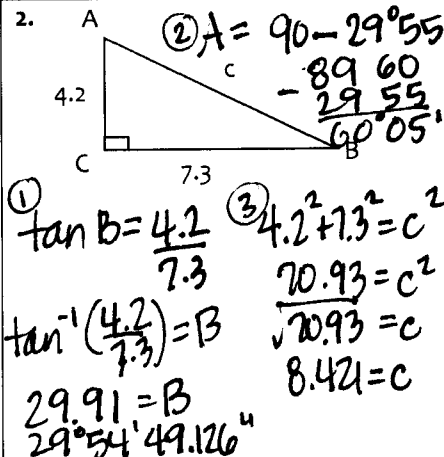 2.
A
4.2
c
C
7.3
B
② A = 90 - 29°55
89 60
- 29 55
60°05'
①
tan B = 4.2/7.3
tan⁻¹(4.2/7.3) = B
29.91 = B
29°54'49.126"
③
4.2² + 7.3² = c²
70.93 = c²
√70.93 = c
8.421 = c